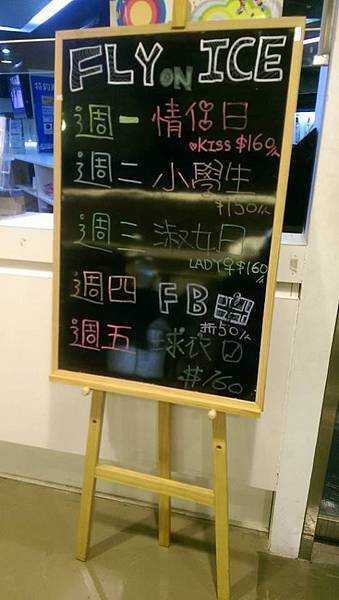 FLY ON ICE
週一 情侶日
♥KISS $160/人
週二 小學生
$150/人
週三 淑女日
LADY♀$160/人
週四 FB
折50/人
週五 球衣日
#160